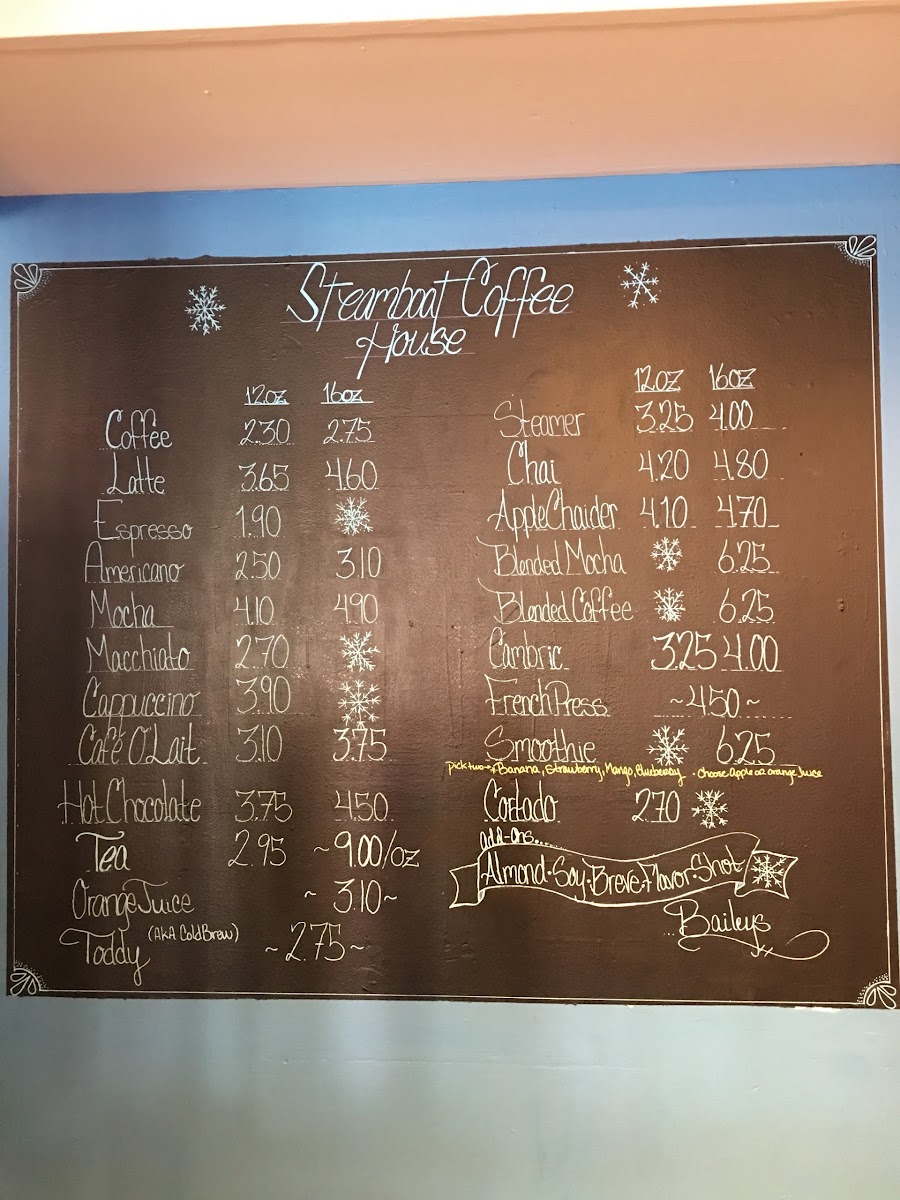 Steamboat Coffee
House
12oz 16oz
Coffee 2.30 2.75
Latte 3.65 4.60
Espresso 1.90
Americano 2.50 3.10
Mocha 4.10 4.90
Macchiato 2.70
Cappuccino 3.90
Café O'Lait 3.10 3.75
Hot Chocolate 3.75 4.50
Tea 2.95 ~9.00/oz
Orange Juice ~3.10~
Toddy (AKA Cold Brew) ~2.75~
12oz 16oz
Steamer 3.25 4.00
Chai 4.20 4.80
Apple Chaider 4.10 4.70
Blended Mocha 6.25
Blended Coffee 6.25
Cambric 3.25 4.00
French Press ~4.50~
Smoothie 6.25
pick two of Banana, Strawberry, Mango, Blueberry · Choose Apple or orange Juice
Cortado 2.70
add-ons....
Almond·Soy·Breve·Flavor·Shot
Baileys